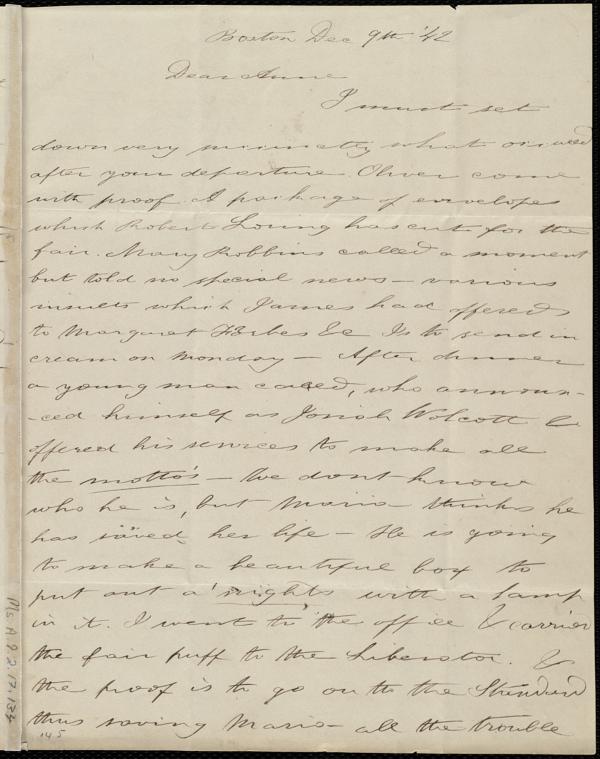 Boston Dec 9th '42
Dear Anne
I must set
down very minutely what occured
after your departure. Oliver came
with proof. A package of envelopes
which Robert Loring has cut for the
fair. Mary Robbins called a moment
but told no special news – various
insults which James had offered
to Margaret Forbes &c Is to send in
cream on Monday – After dinner
a young man called, who announ-
-ced himself as Josiah Wolcott &
offered his services to make all
the motto's – We dont know
who he is, but Maria thinks he
has saved her life – He is going
to make a beautiful box to
put out a' nights with a lamp
in it. I went to the office & carried
the fair puff to the Liberator. &
the proof is to go on to the Standard
thus saving Maria all the trouble
145
Ms A.9.2.17.133